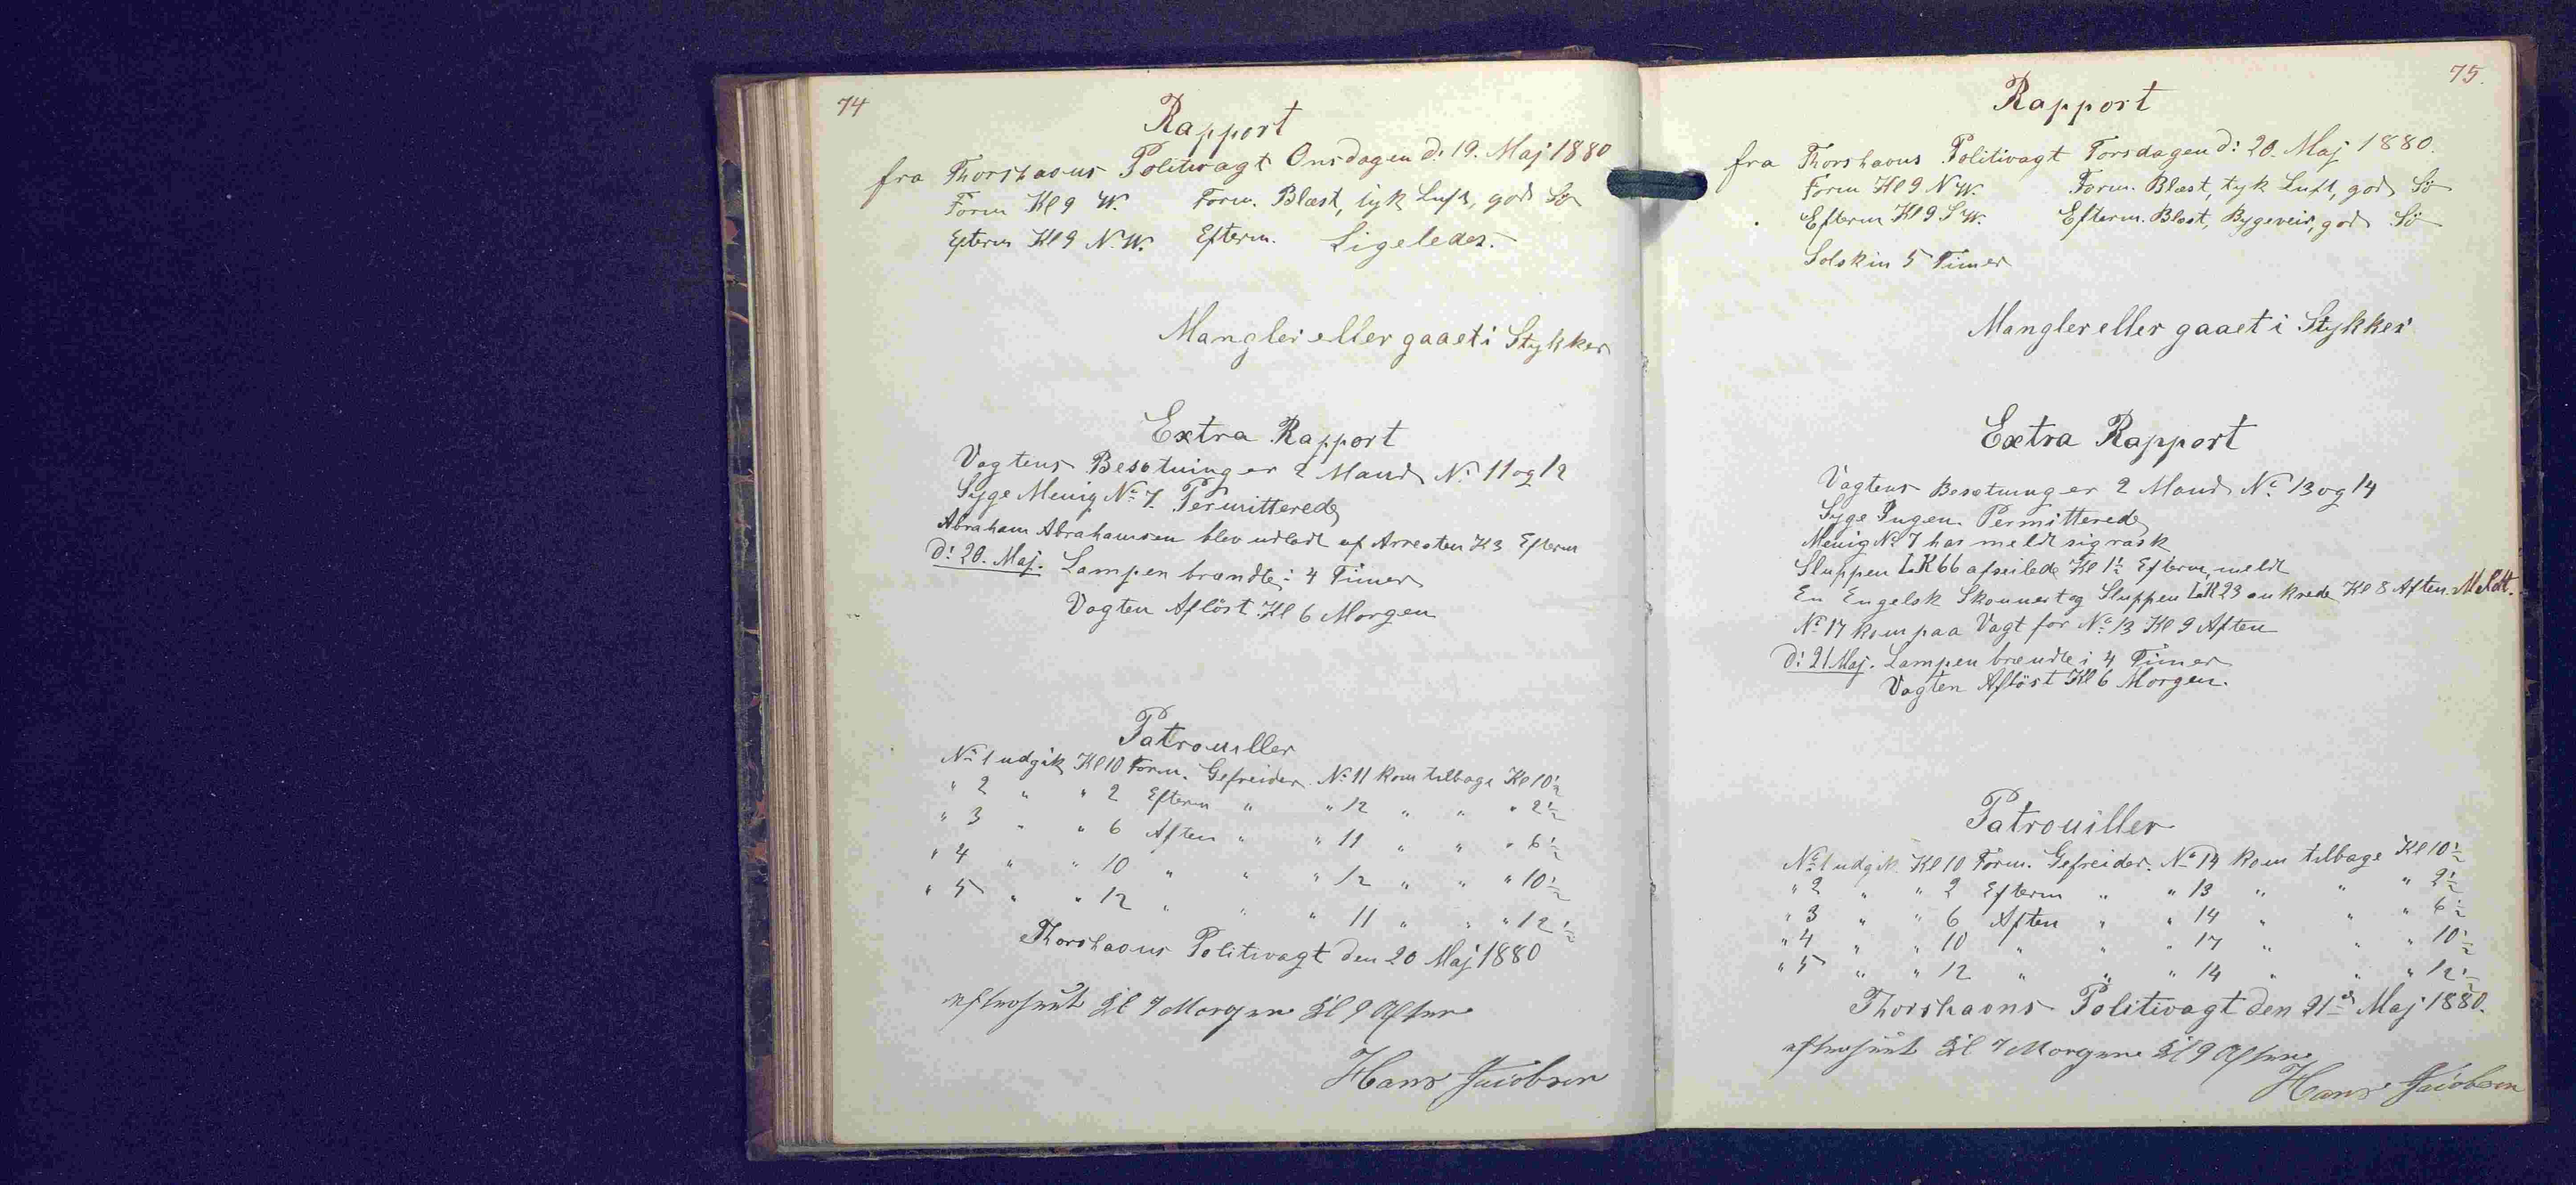 74
Rapport
fra Thorshavns Politivagt Onsdagen d: 19. Maj 1880
Form Kl 9 W. Form. Blæst, tyk Luft, god Sö
Efterm Kl 9 N.W. Efterm. Ligeledes.
Mangler eller gaaet i Stykker
Extra Rapport
Vagtens Besætning er 2 Mand No 11 og 12
Syge Menig No 7. Permitterede
Abraham Abrahamsen blev udladt af Arresten K 3 Efterm
D: 20. Maj. Lampen brændte i 4 Timer
Vagten Aflöst Kl 6 Morgen
Patrouiller
No 1 udgik Kl 10 Form. Gefreider No 11 kom tilbage Kl 10 1/2
" 2 " " 2 Efterm " " 12 " " " 2 1/2
" 3 " " 6 Aften " " 11 " " " 6 1/2
" 4 " " 10 " " " 12 " " " 10 1/2
" 5 " " 12 " " " 11 " " " 12 1/2
Thorshavns Politivagt den 20 Maj 1880
efterseet Kl 7 Morgen Kl 9 Aften
Hans Jacobsen
75.
Rapport
fra Thorshavns Politivagt Torsdagen d: 20. Maj 1880.
Form Kl 9 N W. Form. Blæst, tyk Luft, god Sö
Efterm Kl 9 S W. Efterm. Blæst, Bygeveir, god Sö
Solskin 5 Timer
Mangler eller gaaet i Stykker
Extra Rapport
Vagtens Besætning er 2 Mand No 13 og 14
Syge Ingen Permitterede
Menig No 7 har meldt sig rask
Sluppen LK 66 afseilede Kl 1 1/2 Efterm, meldt
En Engelsk Skonnert og Sluppen LK 23 ankrede Kl 8 Aften. Meldt.
No 17 kom paa Vagt for No 13 Kl 9 Aften
D: 21 Maj. Lampen brændte i 4 Timer
Vagten Aflöst Kl 6 Morgen.
Patrouiller
No 1 udgik Kl 10 Form. Gefreider. No 14 kom tilbage Kl 10 1/2
" 2 " " 2 Efterm " " 13 " " " 2 1/2
" 3 " " 6 Aften " " 14 " " " 6 1/2
" 4 " " 10 " " " 17 " " " 10 1/2
" 5 " " 12 " " " 14 " " " 12 1/2
Thorshavns Politivagt den 21de Maj 1880.
efterseet Kl 7 Morgen Kl 9 Aften
Hans Jacobsen